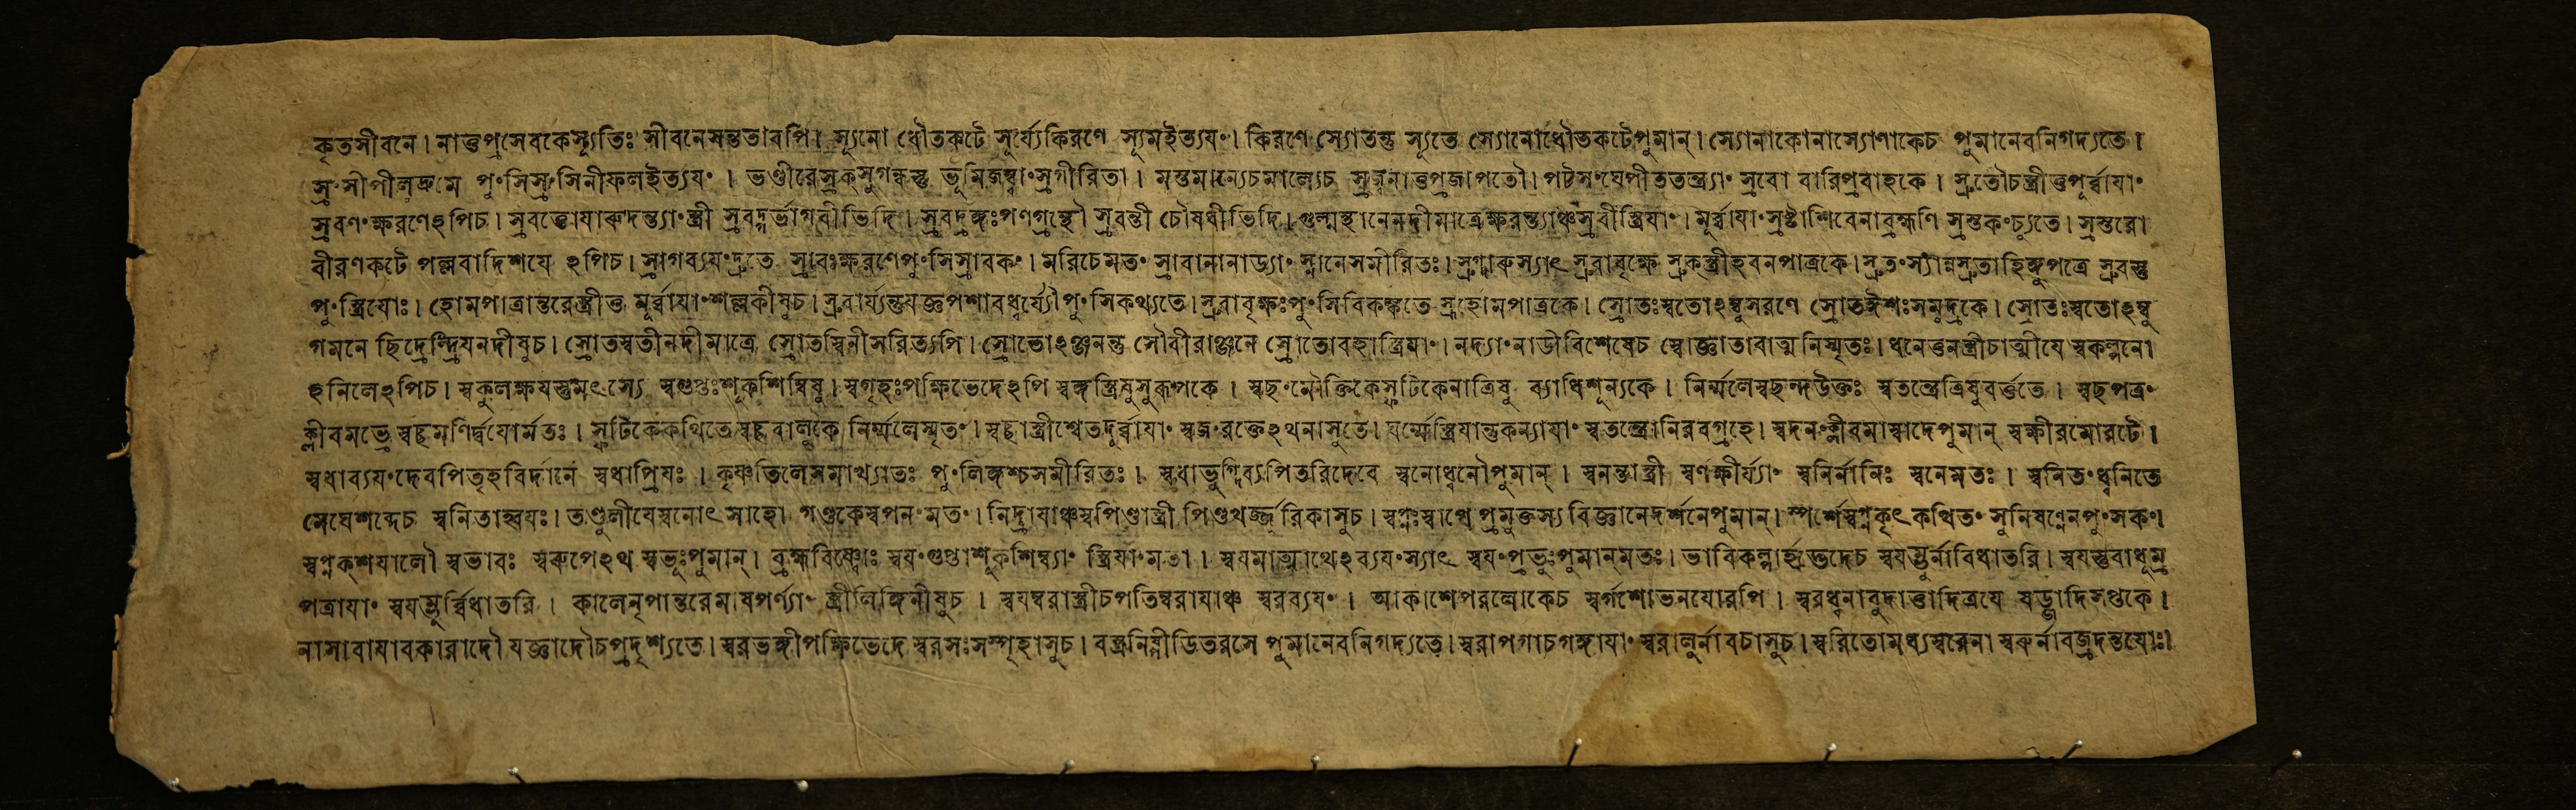 কৃতসীবনে। নাত্তুপ্রসেবকেস্যূতিঃ সীবনেসন্ততাবপি। স্যূনো ধৌতকটে সূর্য্যেকিরণে স্যূমইত্যয়ং। কিরণে স্যোতন্তু স্যূতে স্যোনোধৌতকটেপুমান্। স্যোনাকোনাস্যোণাকেচ পুমানেবনিগদ্যতে।
স্রংসীপীলুদ্রুমে পুংসিস্রংসিনীফলইত্যয়ং। ভণ্ডীরেস্রক্সুগন্ধস্তু ভূমিজম্ব্বাংস্রগীরিতা। মস্তমাল্যেচমাল্যেচ প্রজাপতৌ। পটসংঘেপীততন্ত্র্যাং স্রবো বারিপ্রবাহকে। স্রুতৌচস্ত্রীতুপূর্ব্বায়াং
স্রবণংক্ষরণেঽপিচ। স্রবত্তোযারুদন্ত্যাংস্ত্রী স্রবদ্গর্ভাগবীভিদি। স্রবদ্রঙ্গঃপণগ্রন্থৌ স্রবন্তী চৌষধীভিদি। গুল্মস্থানেনদীমাত্রেক্ষরন্ত্যাঞ্চস্রবীস্ত্রিয়াং। মূর্ব্বায়াংস্রষ্টাশিবেনাব্রহ্মণি স্রস্তকংচ্যুতে। স্রস্তরো
বীরণকটে পল্লবাদিশয়ে ঽপিচ। স্রাগব্যয়ংদ্রুতে স্রাবঃক্ষরণেপুংসিস্রাবকং। মরিচেমতং স্রাবানানাড্যাং স্নানেসমীরিতঃ। স্রুগ্দারুস্যাৎ স্রুবাবৃক্ষে স্রুকস্ত্রীহবনপাত্রকে। স্রুতংস্যান্নস্রুতাহিঙ্গুপত্রে স্রুবস্তু
পুংস্ত্রিয়োঃ। হোমপাত্রান্তরেস্ত্রীতু মূর্ব্বায়াংশল্লকীষুচ। স্রুবার্য্যস্তুযজ্ঞপশাবধ্বর্য্যৌপুংসিকথ্যতে। স্রুবাবৃক্ষঃপুংসিবিকঙ্কতে স্রূর্হোমপাত্রকে। স্রোতঃস্বতোঽম্বুসরণে স্রোতঈশঃসমুদ্রকে। স্রোতঃস্বতোঽম্বু
গমনে ছিদ্রেন্দ্রিয়নদীষুচ। স্রোতস্বতীনদীমাত্রে স্রোতস্বিনীসরিত্যপি। স্রোতোঽঞ্জনন্তু সৌবীরাঞ্জনে স্রোতোবহাস্ত্রিয়াং। নদ্যাংনাডীবিশেষেচ স্বোজ্ঞাতাবাত্মনিস্মৃতঃ। ধনেত্তনস্ত্রীচাত্মীয়ে স্বকল্পনো
ঽনিলেঽপিচ। স্বকুলক্ষয়স্তুমৎস্যে স্বগুপ্তঃশূকশিম্বিষু। স্বগৃহঃপক্ষিভেদেঽপি স্বঙ্গস্ত্রিষুসুরূপকে। স্বছংমৌক্তিকেস্ফটিকেনাত্রিষু ব্যাধিশূন্যকে। নির্ম্মলেস্বছন্দউক্তঃ স্বতন্ত্রেত্রিষুবর্ত্ততে। স্বছপত্রং
ক্লীবমভ্রে স্বচ্ছমণির্দ্বয়োর্মতঃ। স্ফটিকেকথিতেস্বচ্ছবালুকে নির্ম্মলেস্মৃতং। স্বচ্ছাস্ত্রীশ্বেতদূর্ব্বায়াং স্বজংরক্তেঽথনাসুতে। ঘর্ম্মেস্ত্রিয়ান্তুকন্যায়াং স্বতন্ত্রোনিরবগ্রহে। স্বদনংক্লীবমাস্বাদেপুমান্ স্বক্ষীরমোরটে।
স্বধাব্যয়ংদেবপিতৃহবির্দানে স্বধাপ্রিয়ঃ। কৃষ্ণতিলেসমাখ্যাতঃ পুংলিঙ্গশ্চসমীরিতঃ। স্বধাভুগ্নিব্যপিতরিদেবে স্বনোধ্বনৌপুমান্। স্বনন্তাস্ত্রী স্বর্ণক্ষীর্য্যাং স্বনির্নানিঃ স্বনেমতঃ। স্বনিতংধ্বনিতে
মেঘেশব্দেচ স্বনিতাহ্বয়ঃ। তণ্ডুলীয়েস্বনোৎসাহো গণ্ডকেস্বপনংমতং। নিদ্রায়াঞ্চস্বপিণ্ডাস্ত্রী পিণ্ডখর্জ্জূরিকাসুচ। স্বপ্নঃস্বাপে প্রমুক্তস্যবিজ্ঞানেদর্শনেপুমান্। স্পর্শেস্বপ্নকৃৎকথিতং সুনিষণ্ণেনপুংসকং।
স্বপ্নক্শয়ালৌ স্বভাবঃ স্বরূপেঽথ স্বভূঃপুমান্। ব্রহ্মবিষ্ণোঃ স্বয়ংগুপ্তাশূকশিম্ব্যাং স্ত্রিয়াংমতা। স্বয়মাত্মার্থেঽব্যয়ংস্যাৎ স্বয়ংপ্রভুঃপুমান্মতঃ। ভাবিকল্পার্হদ্ভেদেচ স্বয়ম্ভুর্নাবিধাতরি। স্বয়ম্ভুবাধূম্র
পত্রায়াং স্বয়ম্ভুর্ব্বিধাতরি। কালেনৃপান্তরেমাষপর্ণ্যাং স্ত্রীলিঙ্গিনীষুচ। স্বয়ম্বরাস্ত্রীচপতিম্বরায়াঞ্চ স্বরব্যয়ং। আকাশেপরলোকেচ স্বর্গশোভনয়োরপি। স্বরধ্বনাবুদাত্তাদিত্রয়ে ষড়্জাদিসপ্তকে।
নাসাবায়াবকারাদৌ যজ্ঞাদৌচপ্রদৃশ্যতে। স্বরভঙ্গীপক্ষিভেদে স্বরসঃসস্পৃহাসুচ। বস্ত্রনিষ্পীডিতরসে পুমানেবনিগদ্যতে। স্বরাপগাচগঙ্গায়াং স্বরালুর্নাবচাসুচ। স্বরিতোমধ্যস্বরেনা স্বরুর্নাবজ্রদন্তয়োঃ।